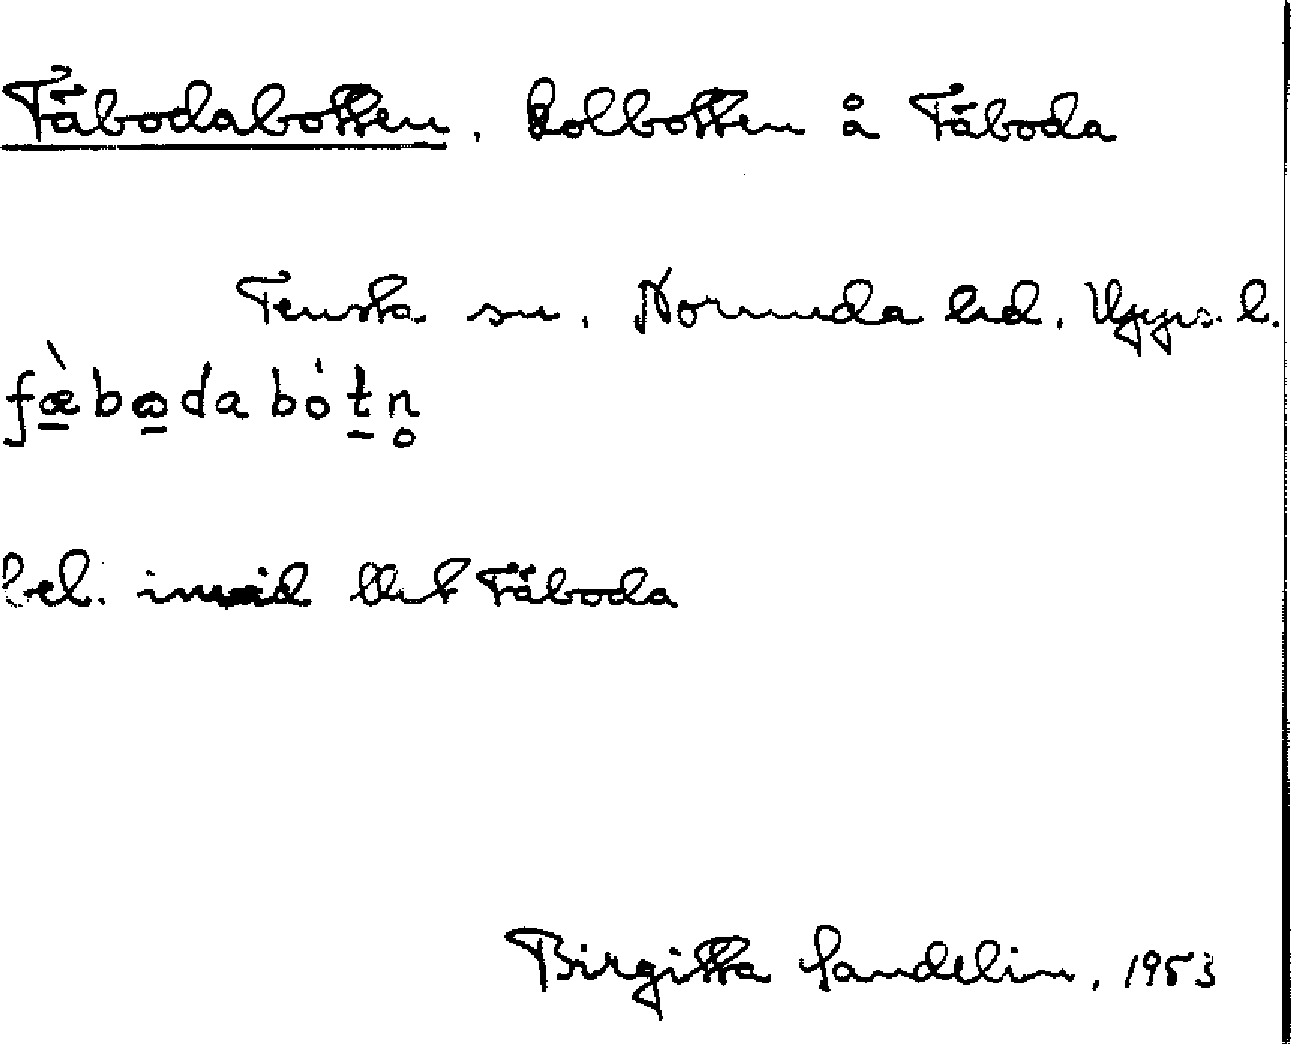 Fäbodabotten, kolbotten å Fäboda
Tensta sn, Norunda hd, Upps. l.
fæ̀bωdabótn̥
bel. invid Fäboda
Birgitta Sandelin, 1953